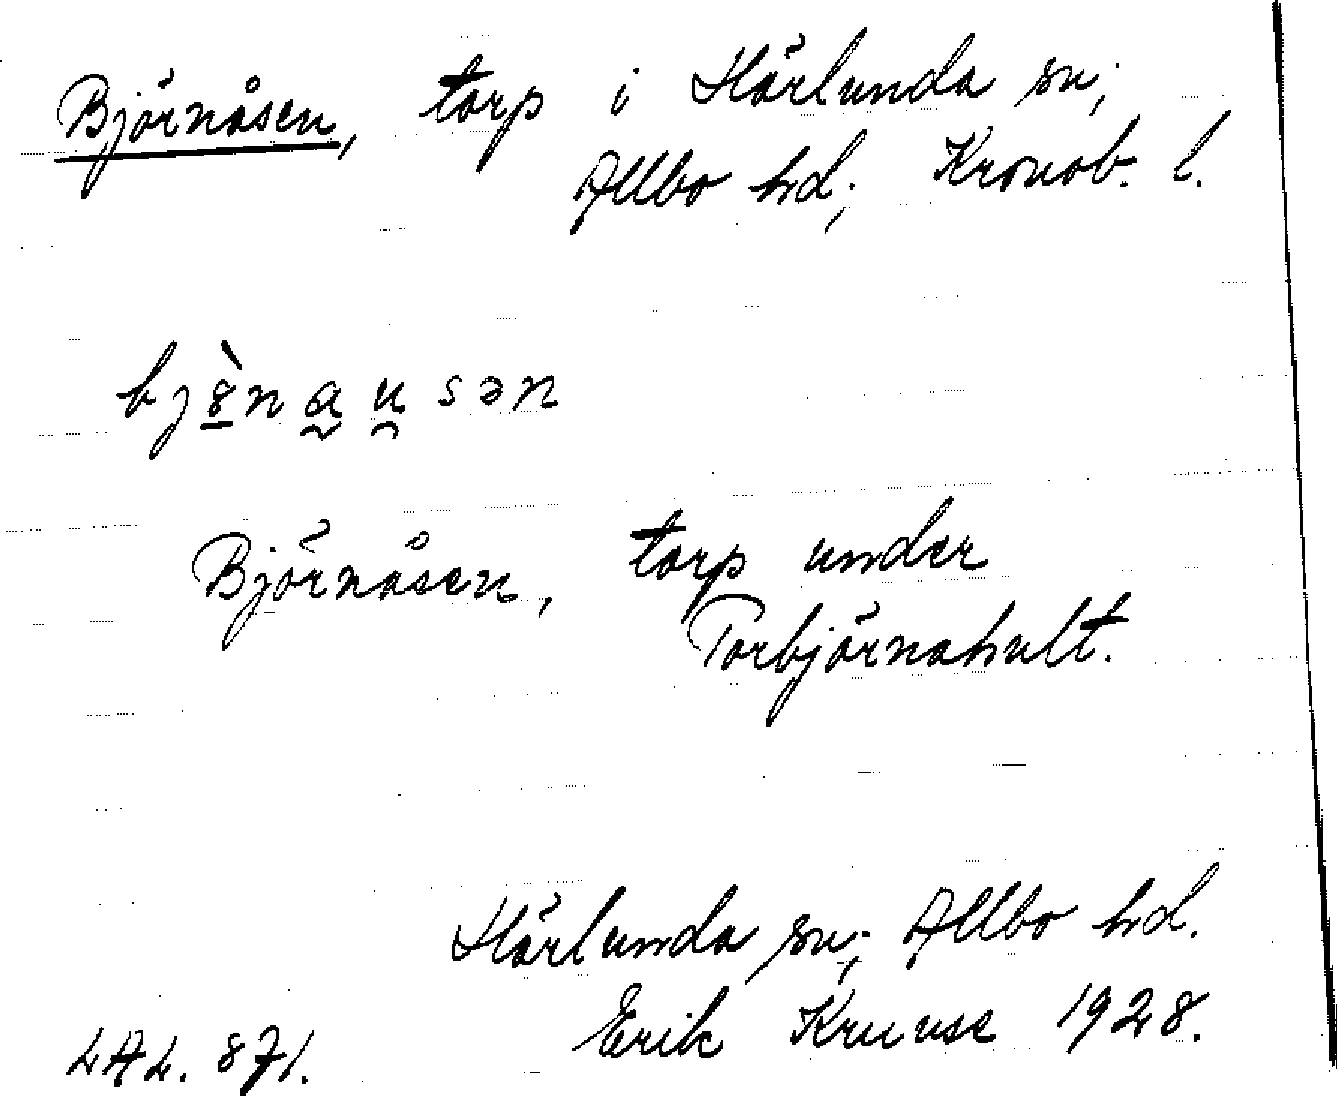 Björnåsen, torp i Härlunda sn;
Allbo hd; Kronob. l.
Björnåsen, torp under
Torbjörnahult.
Härlunda sn; Allbo hd.
LAL. 871. Erik Kruuse 1928.